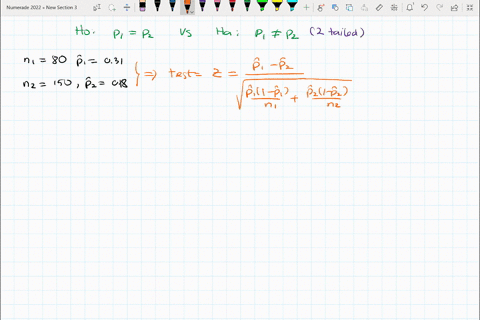 Numerade 2022 » New Section 3
Ho: p₁ = p₂ vs Ha: p₁ ≠ p₂ (2 tailed)
n₁ = 80 p̂₁ = 0.31
n₂ = 150, p̂₂ = 0.18
⇒ test = z = (p̂₁ - p̂₂) / √(p̂₁(1-p̂₁)/n₁ + p̂₂(1-p̂₂)/n₂)